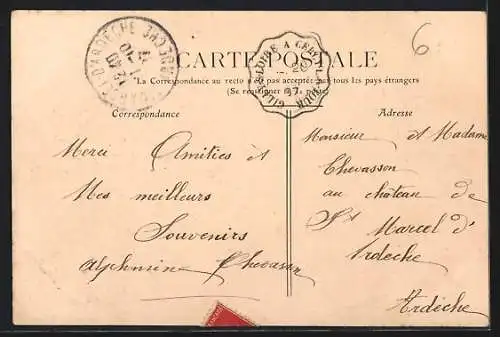 CARTE POSTALE
"La Correspondance au recto n'est pas acceptée par tous les pays étrangers
(Se renseigner
Correspondance
Adresse
Merci Amitiés et
Mes meilleurs
Souvenirs
Monsieur et Madame
Chevasson
au château de
St Marcel d'
Ardèche
Ardèche
D'ARDÈCHE
6